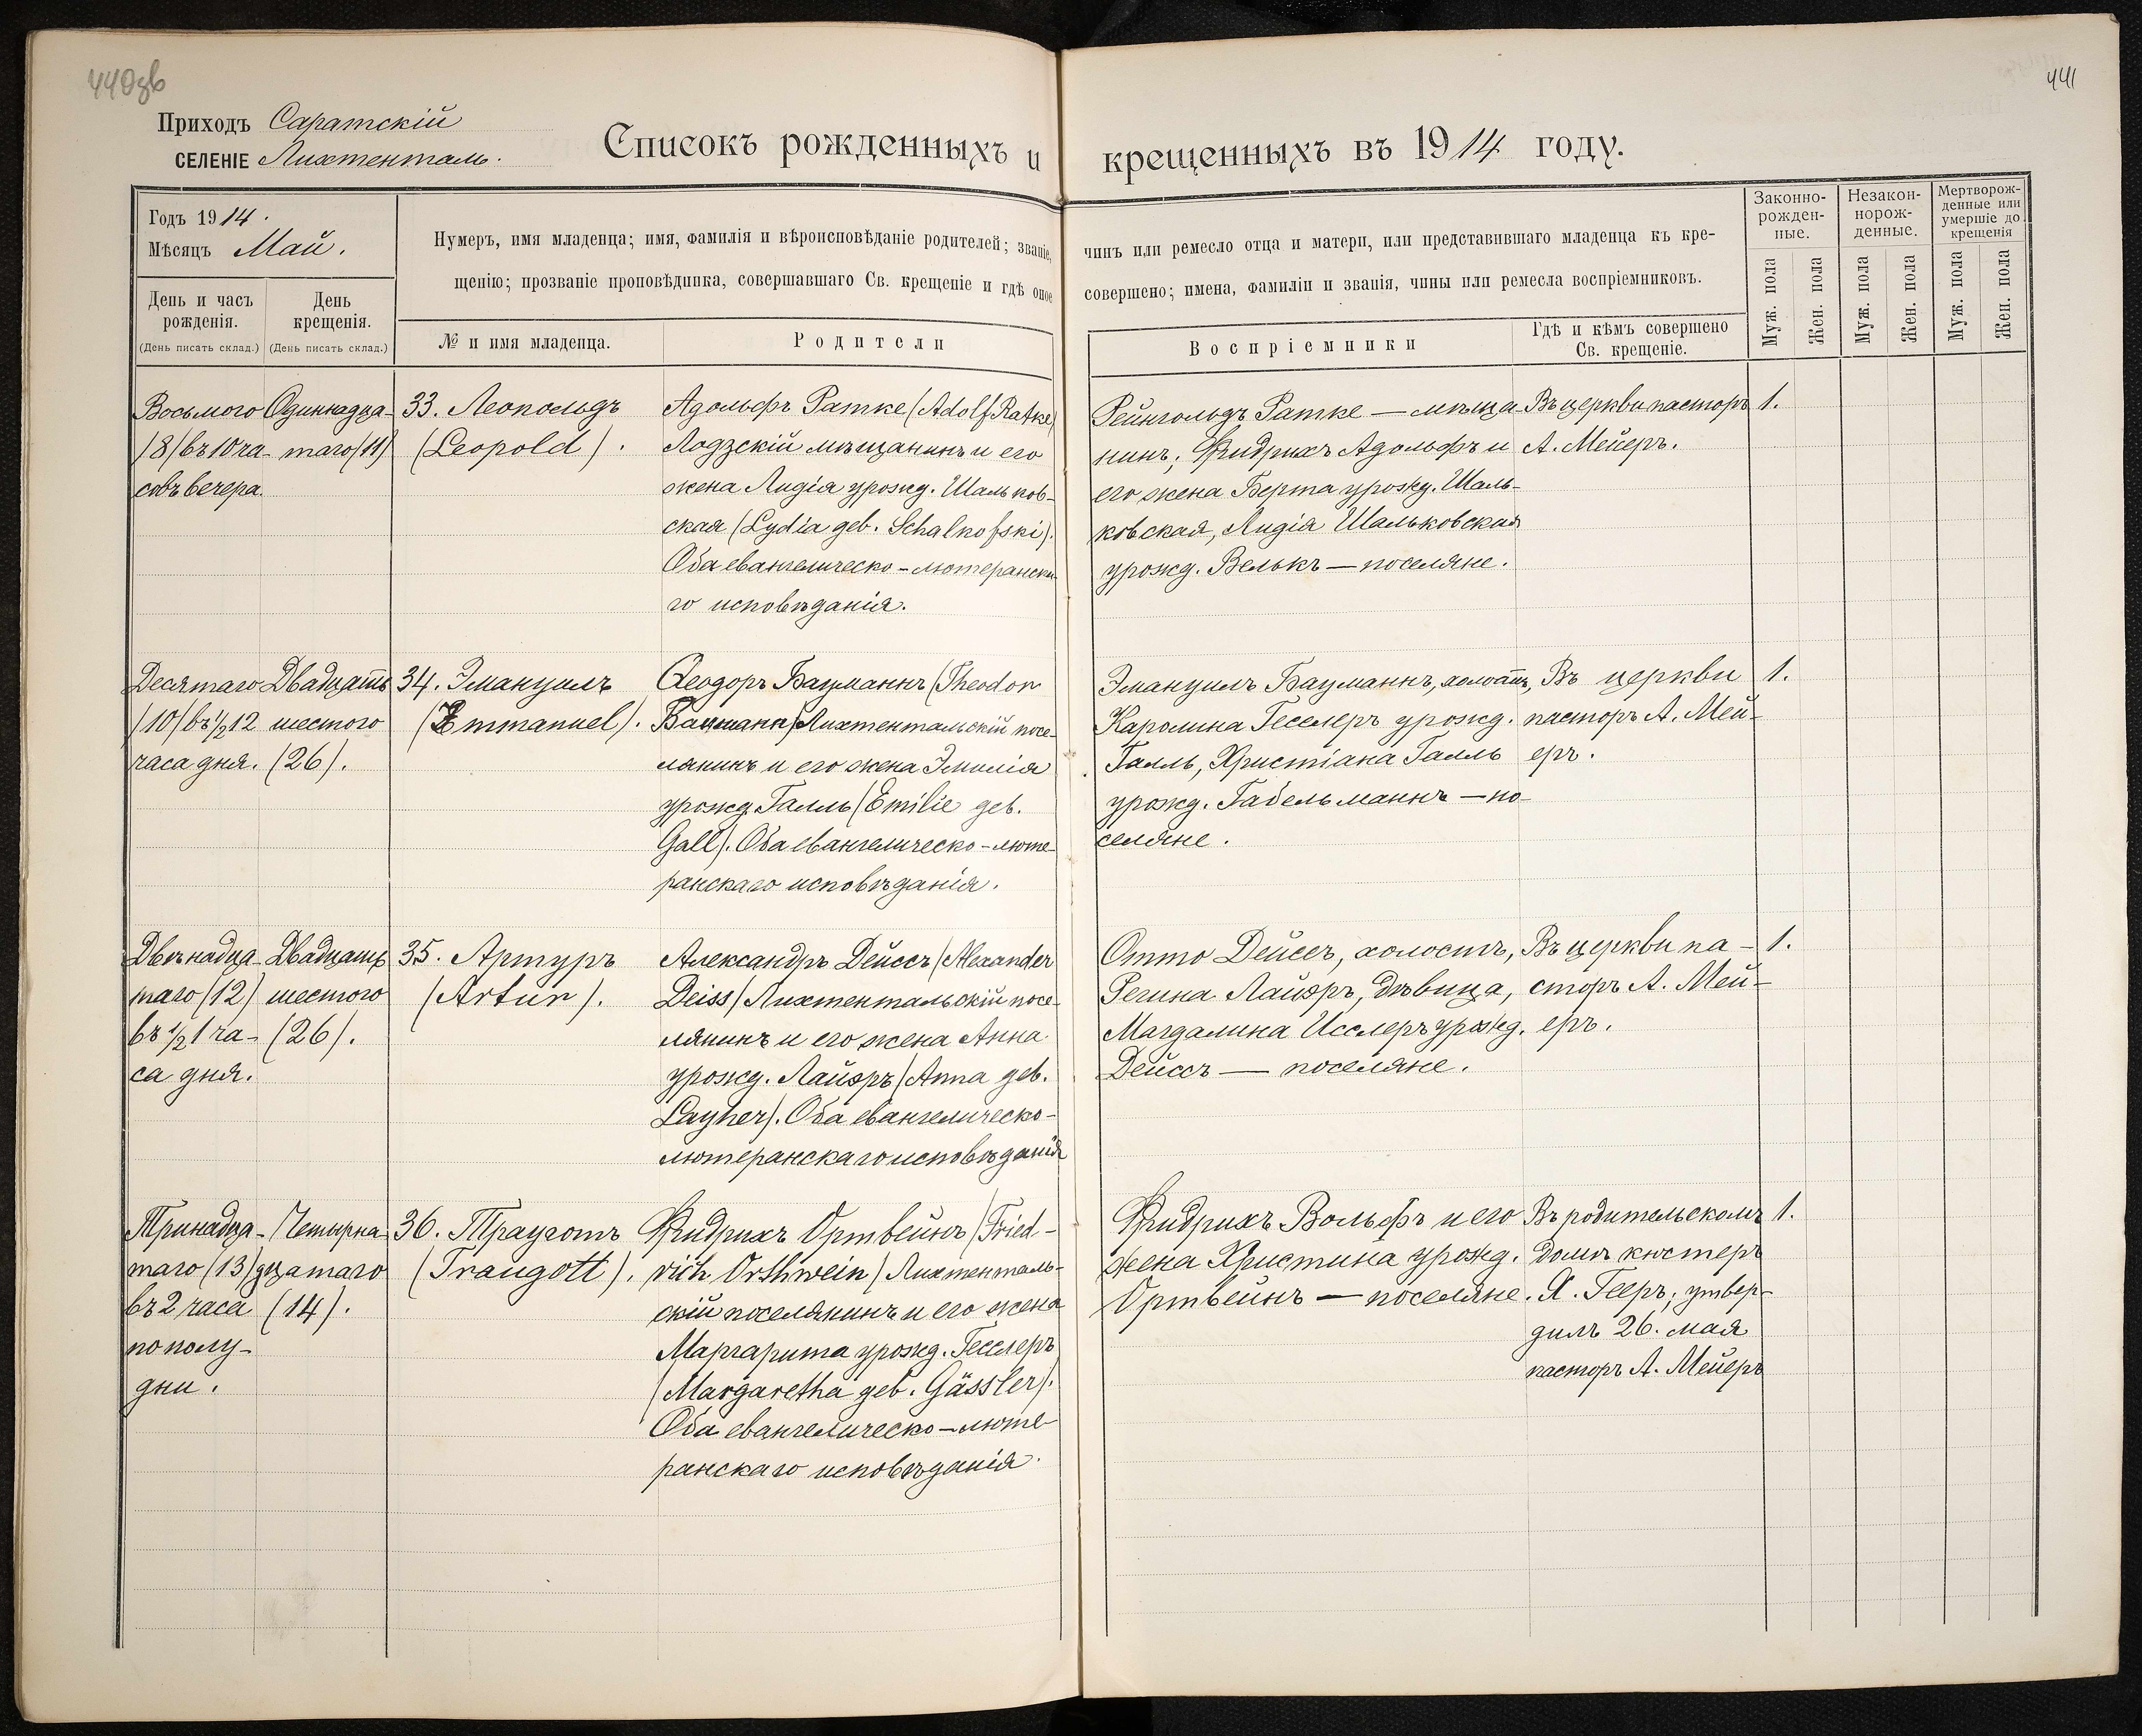 440об
441
Приходъ Саратскій
СЕЛЕНІЕ Лихтенталь.
Списокъ рожденныхъ и крещенныхъ въ 1914 году.
Годъ 1914.
Мѣсяцъ Май.
День и часъ рожденія.
(День писать склад.)
День крещенія.
(День писать склад.)
Нумеръ, имя младенца; имя, фамилія и вѣроисповѣданіе родителей; званіе, чинъ или ремесло отца и матери, или представившаго младенца къ кре-
щенію; прозваніе проповѣдника, совершавшаго Св. крещеніе и гдѣ оное совершено; имена, фамиліи и званія, чины или ремесла воспріемниковъ.
№ и имя младенца.
Родители
Воспріемники
Гдѣ и кѣмъ совершено
Св. крещеніе.
Законно-
рожден-
ные.
Незакон-
норож-
денные.
Мертворож-
денные или
умершіе до
крещенія
Муж. пола
Жен. пола
Муж. пола
Жен. пола
Муж. пола
Жен. пола
Восьмого
/8/ въ 10 ча-
совъ вечера.
Одиннадца-
таго /11/
33. Леопольдъ
(Leopold).
Адольфъ Ратке (Adolf Ratke)
Лодзскій мѣщанинъ и его
жена Лидія урожд. Шальков-
ская (Lydia geb. Schalkofski).
Оба евангелическо-лютеранска-
го исповѣданія.
Рейнгольдъ Ратке — мѣща
нинъ; Фридрихъ Адольфъ и
его жена Берта урожд. Шаль-
ковская, Лидія Шальковская
урожд. Велькъ — поселяне.
Въ церкви пасторъ
А. Мейеръ.
1.
Десятаго
/10/ въ ½12
часа дня.
Двадцать
шестого
(26).
34. Эмануилъ
(Emmanuel).
Ѳеодоръ Бауманнъ (Theodor
Бауманн) Лихтентальскій посе-
лянинъ и его жена Эмилія
урожд. Галль (Emilie geb.
Gall). Оба евангелическо-люте-
ранскаго исповѣданія.
Эмануилъ Бауманнъ, холостъ,
Каролина Гесслеръ урожд.
Галль, Христіана Галль
урожд. Габельманнъ — по-
селяне.
Въ церкви
пасторъ А. Мей-
еръ.
1.
Двѣнадца-
таго /12/
въ ½1 ча-
са дня.
Двадцать
шестого
(26).
35. Артуръ
(Artur).
Александръ Дейссъ /Alexander
Deiss/ Лихтентальскій посе-
лянинъ и его жена Анна
урожд. Лайэръ /Anna geb.
Layher/. Оба евангелическо-
лютеранскаго исповѣданія
Отто Дейссъ, холостъ,
Регина Лайэръ, дѣвица,
Магдалина Исслеръ урожд.
Дейссъ — поселяне.
Въ церкви па-
сторъ А. Мей-
еръ.
1.
Тринадца-
таго /13/
въ 2 часа
по полу-
дни.
Четырна
дцатаго
(14).
36. Трауготъ
(Traugott).
Фридрихъ Ортвейнъ /Fried-
rich Orthwein/ Лихтенталь-
скій поселянинъ и его жена
Маргарита урожд. Гесслеръ
(Margaretha geb. Gässler).
Оба евангелическо-люте-
ранскаго исповѣданія.
Фридрихъ Вольфъ и его
жена Христина урожд.
Ортвейнъ — поселяне.
Въ родительскомъ
домѣ кюстеръ
Я. Гееръ; утвер-
дилъ 26. мая
пасторъ А. Мейеръ
1.